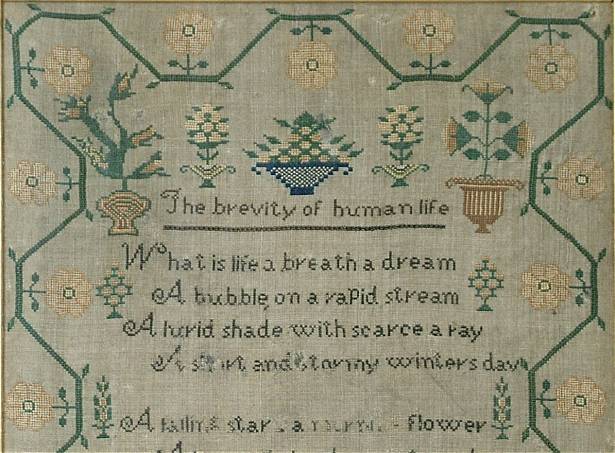 The brevity of human life
What is life a breath a dream
A bubble on a rapid stream
A lurid shade with scarce a ray
A short and stormy winters day
A falling star a flower